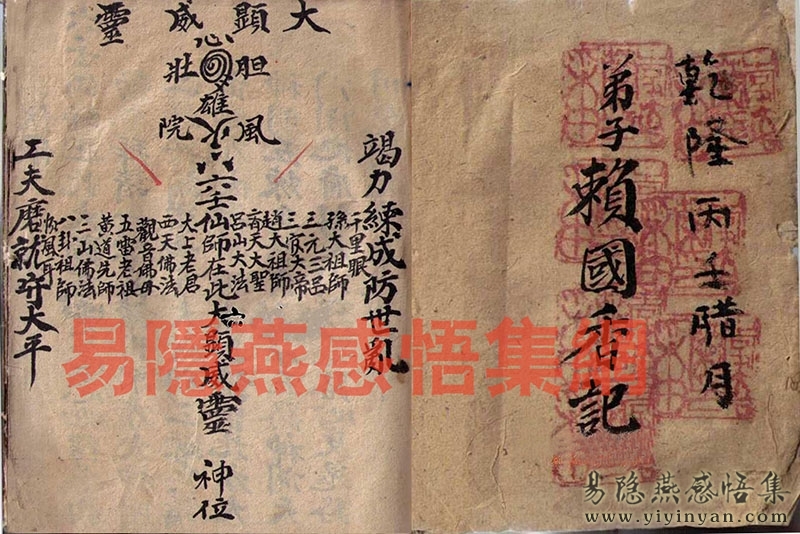 乾隆丙子腊月
弟子賴國香記
大顯威靈
心
壯胆
雄
院風
竭力練成防世亂
千里眼
孫大祖師
三元三品
趙大祖師
三官大帝
齊天大聖
呂山大法
仙師在此大顯威靈
神位
太上老君
西天佛法
觀音佛母
五雷老祖
黃道先師
二山佛法
八卦祖師
順風耳
工夫磨就守太平
易隱燕感悟集網
易隐燕感悟集
www.yiyinyan.com